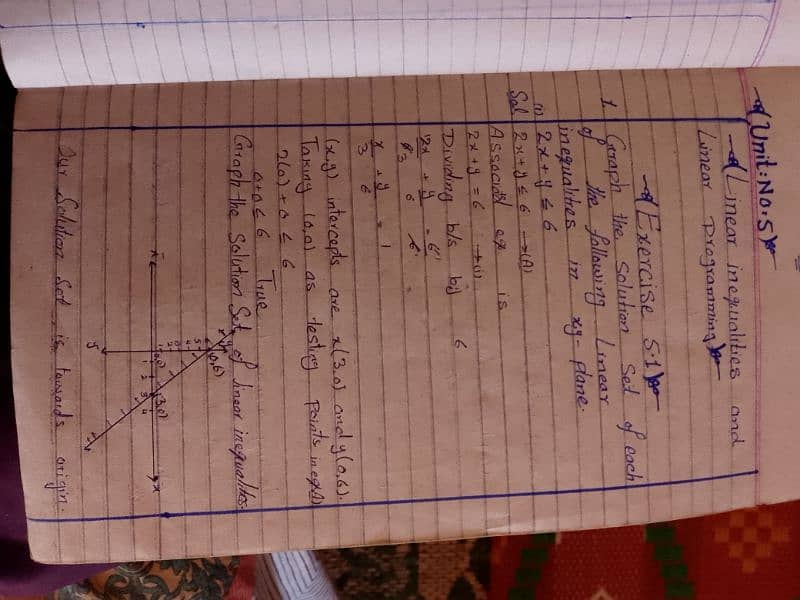 Unit: No: 5
Linear inequalities and
Linear Programming
Exercise 5.1
1. Graph the Solution Set of each
of the following Linear
inequalities in xy-plane.
(i) 2x + y ≤ 6
Sol 2x + y ≤ 6 → (A)
Associated eq is
2x + y = 6 → (i)
Dividing b/s by 6
2x/6 + y/6 = 6/6
x/3 + y/6 = 1
(x,y) intercepts are x(3,0) and y(0,6).
Taking (0,0) as testing points in eq (A)
2(0) + 0 ≤ 6
0+0 ≤ 6 True
Graph the Solution Set of linear inequalities.
y
(0,6)
(3,0)
x
y
Our Solution Set is towards origin.